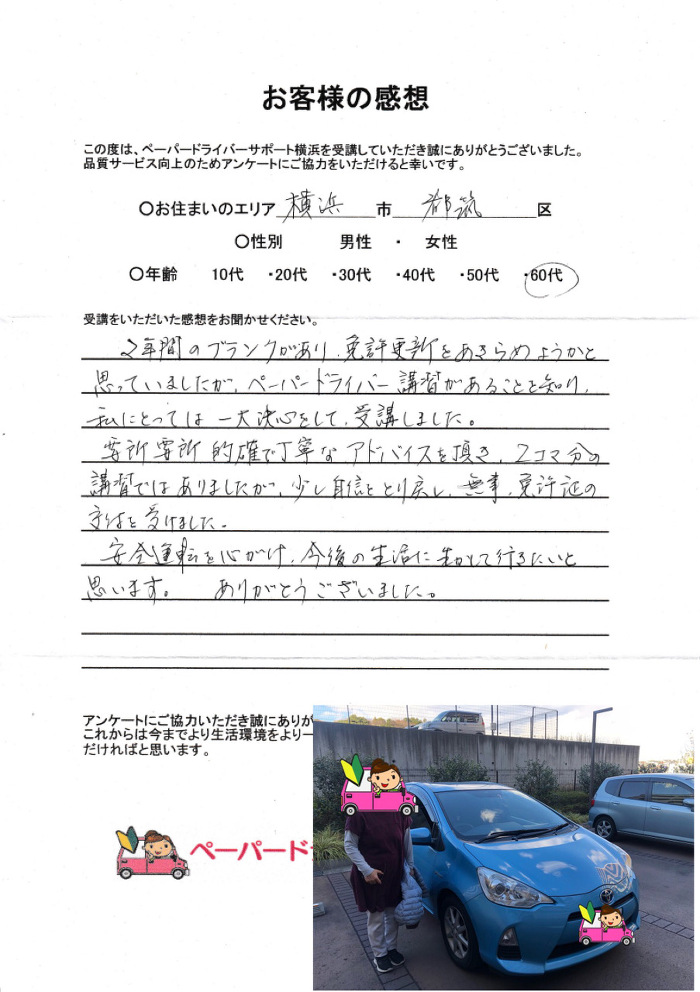 お客様の感想
この度は、ペーパードライバーサポート横浜を受講していただき誠にありがとうございました。
品質サービス向上のためアンケートにご協力をいただけると幸いです。
〇お住まいのエリア 横浜 市 都筑 区
〇性別 男性 ・ 女性
〇年齢 10代 ・20代 ・30代 ・40代 ・50代 ・60代
受講をいただいた感想をお聞かせください。
2年間のブランクがあり、免許更新をあきらめようかと
思っていましたが、ペーパードライバー講習があることを知り、
私にとっては一大決心をして、受講しました。
要所要所 的確で丁寧なアドバイスを頂き、2コマ分の
講習ではありましたが、少し自信をとり戻し、無事、免許証の
交付を受けました。
安全運転を心がけ、今後の生活に生かして行きたいと
思います。 ありがとうございました。
アンケートにご協力いただき誠にありが
これからは今までより生活環境をより一
だければと思います。
ペーパード